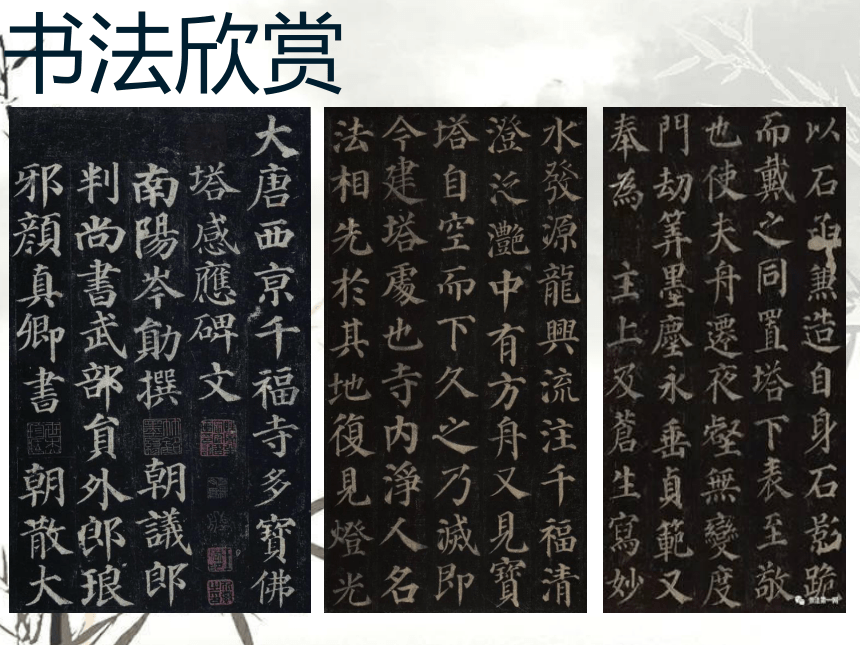 书法欣赏
大唐西京千福寺多寶佛
塔感應碑文
南陽岑勛撰 朝議郎
判尚書武部員外郎琅
邪顏真卿書 朝散大
水發源龍興流注千福清
澄泛灩中有方舟又見寶
塔自空而下久之乃滅即
今建塔處也寺内淨人名
法相先於其地復見燈光
以石函兼造自身石影跪
而戴之同置塔下表至敬
也使夫舟遷夜壑無變度
門劫筭墨塵永垂貞範又
奉為 主上及蒼生寫妙
书法第一网